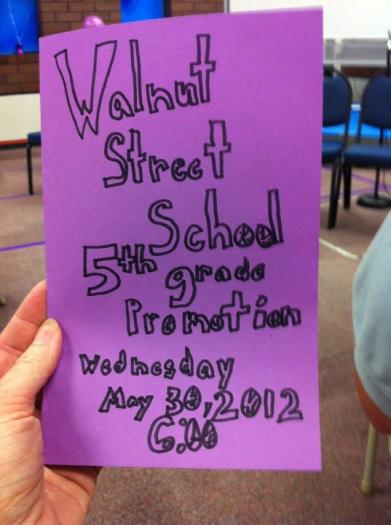 Walnut
Street
School
5th grade
Promotion
Wednesday
May 30, 2012
6:00